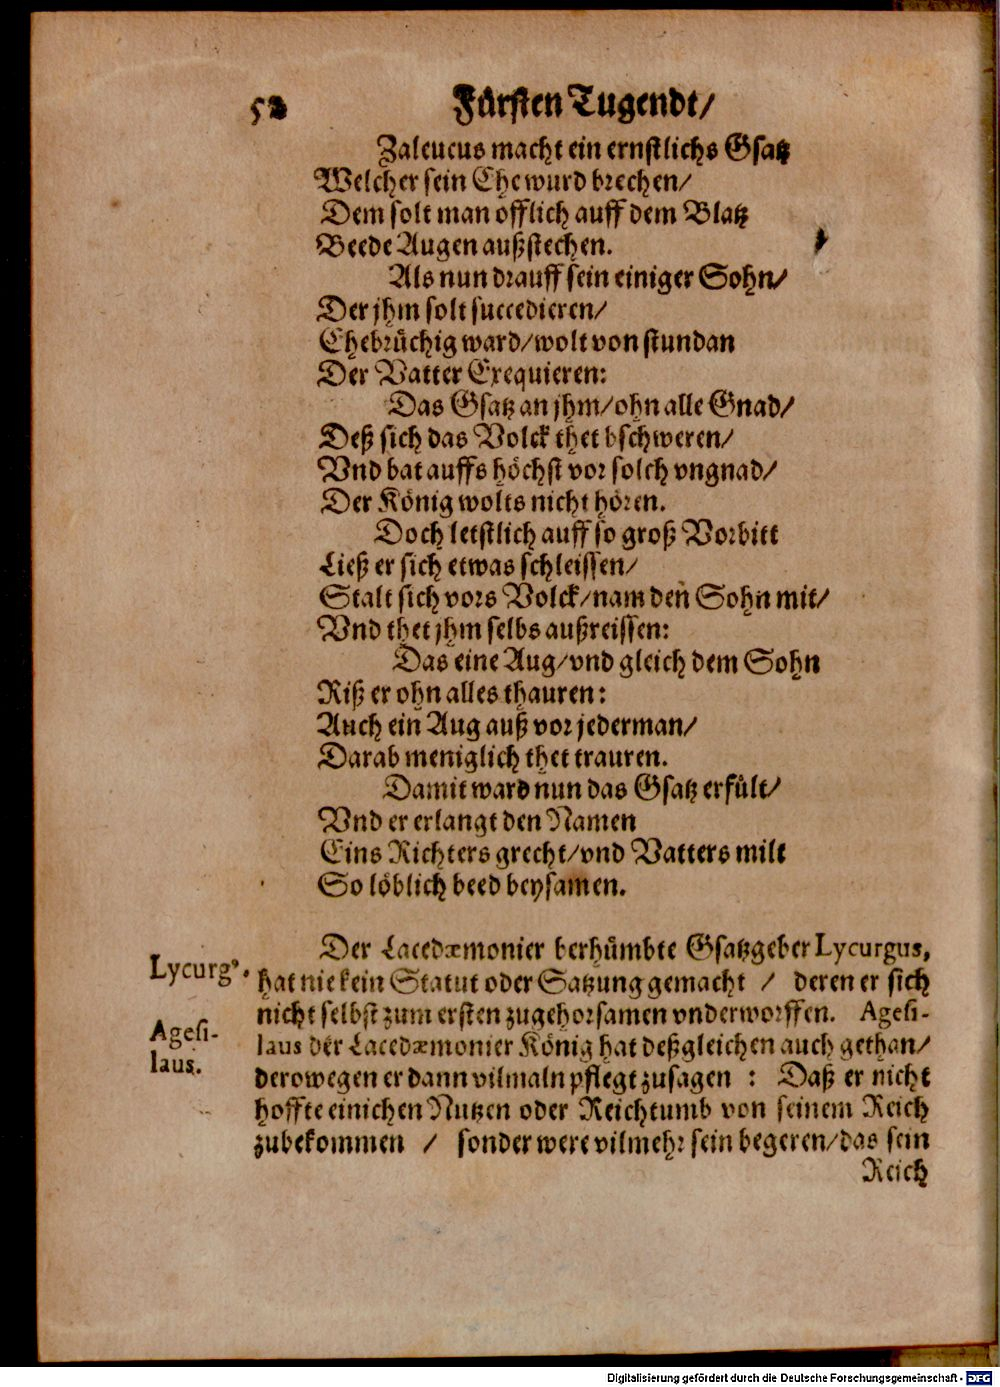 52 Fürsten Tugendt/
Zaleucus macht ein ernstlichs Gsatz
Welcher sein Ehe wurd brechen/
Dem solt man öfflich auff dem Blatz
Beede Augen außstechen.
Als nun drauff sein einiger Sohn/
Der jhm solt succedieren/
Ehebrüchig ward/wolt von stundan
Der Vatter Exequieren:
Das Gsatz an jhm/ohn alle Gnad/
Deß sich das Volck thet bschweren/
Vnd bat auffs höchst vor solch vngnad/
Der König wolts nicht hören.
Doch letstlich auff so groß Vorbitt
Ließ er sich etwas schleissen/
Stalt sich vors Volck/nam den Sohn mit/
Vnd thet jhm selbs außreissen:
Das eine Aug/vnd gleich dem Sohn
Riß er ohn alles thauren:
Auch ein Aug auß vor jederman/
Darab meniglich thet trauren.
Damit ward nun das Gsatz erfült/
Vnd er erlangt den Namen
Eins Richters grecht/vnd Vatters milt
So löblich beed beysamen.
Der Lacedæmonier berhümbte Gsatzgeber Lycurgus,
Lycurg⁹.
hat nie kein Statut oder Satzung gemacht / deren er sich
nicht selbst zum ersten zugehorsamen vnderworffen. Agesi-
Agesi-
laus.
laus der Lacedæmonier König hat deßgleichen auch gethan/
derowegen er dann vilmaln pflegt zusagen : Daß er nicht
hoffte einichen Nutzen oder Reichtumb von seinem Reich
zubekommen / sonder were vilmehr sein begeren/das sein
Reich
Digitalisierung gefördert durch die Deutsche Forschungsgemeinschaft - DFG